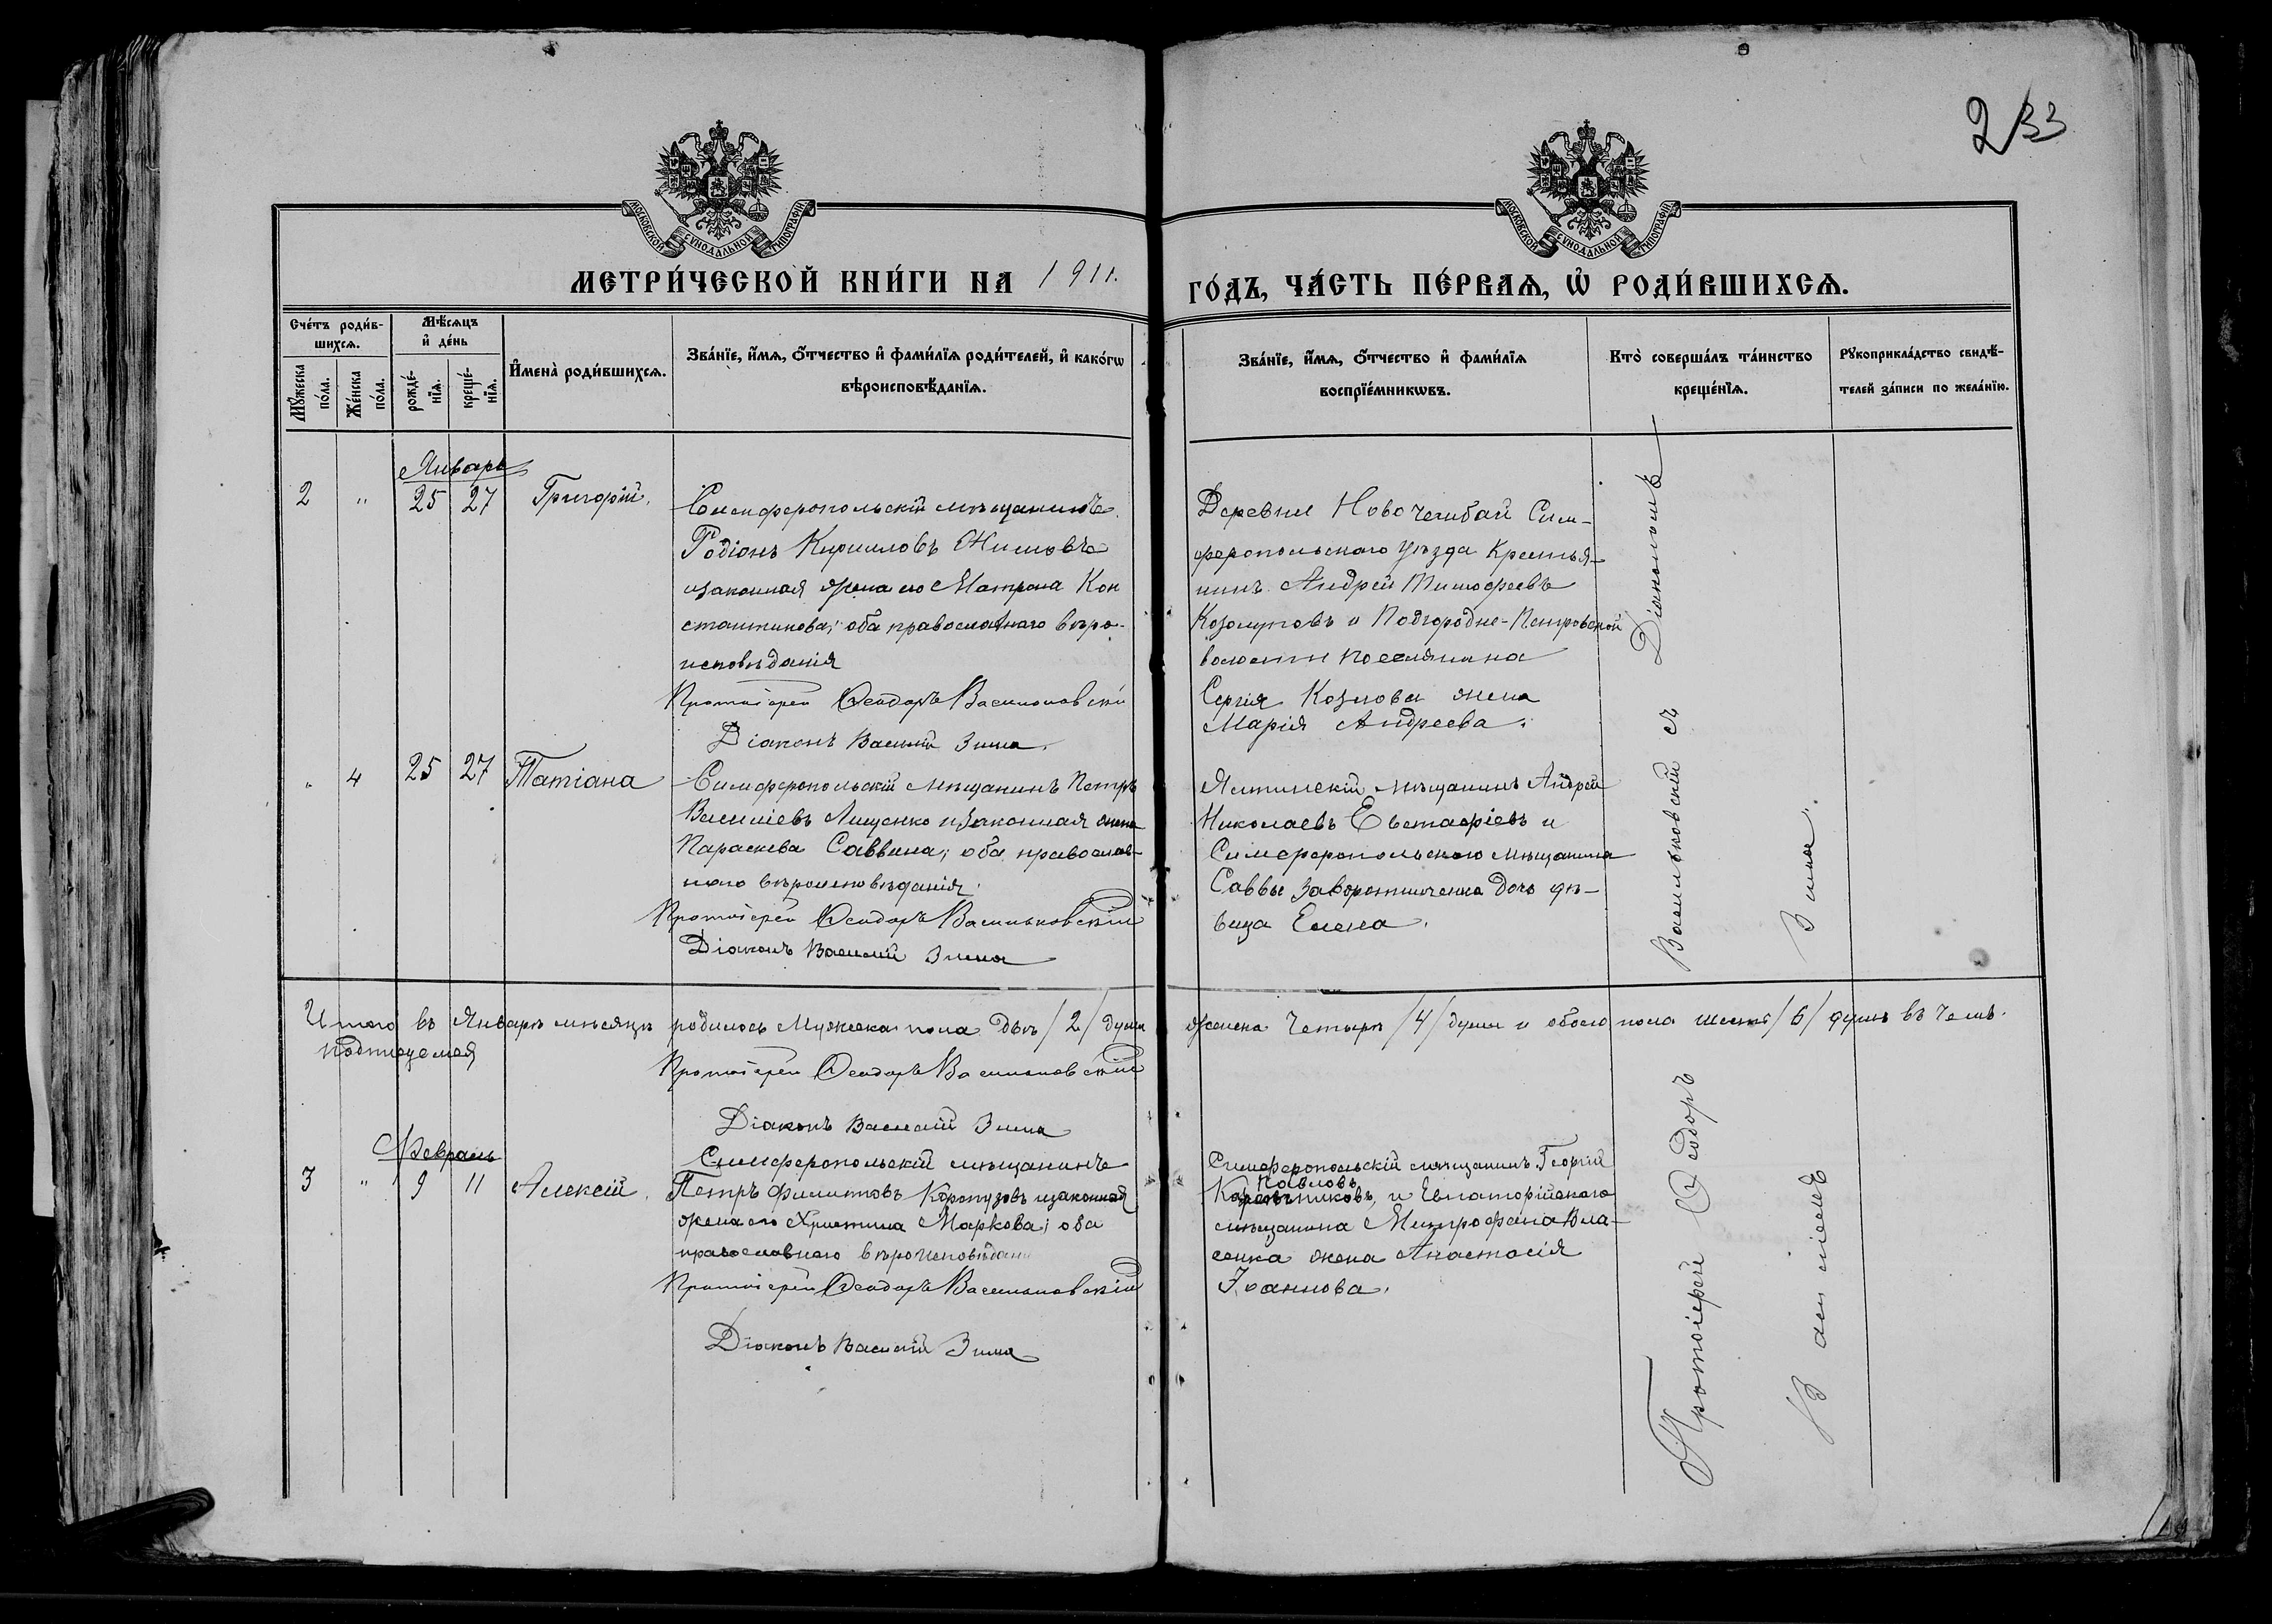 233
МОСКОВСКОЙ СѴНОДАЛЬНОЙ ТИПОГРАФІИ
МОСКОВСКОЙ СѴНОДАЛЬНОЙ ТИПОГРАФІИ
МЕТРИ́ЧЕСКОЙ КНИ́ГИ НА 1911. ГО́ДЪ, ЧА́СТЬ ПЕ́РВАѦ, Ѿ РОДИ́ВШИХСѦ.
Сче́тъ роди́в-
шихсѧ.
Мꙋ́жеска
по́ла.
Же́нска
по́ла.
Мѣ́сѧцъ
и҆ де́нь
рожде́-
нїѧ.
креще́-
нїѧ.
И҆мена̀ роди́вшихсѧ.
Зва́нїе, и҆́мѧ, ѻ҆́тчество и҆ фами́лїѧ роди́телей, и҆ како́гѡ
вѣроисповѣ́данїѧ.
Зва́нїе, и҆́мѧ, ѻ҆́тчество и҆ фами́лїѧ
воспрїе́мникѡвъ.
Кто̀ соверша́лъ та́инство
креще́нїѧ.
Рꙋкоприкла́дство свидѣ́-
телей за́писи по жела́нїю.
Январь
2 " 25 27 Григорій.
Симферопольскій мѣщанинъ
Родіонъ Кирилловъ
изаконная жена его Матрона Кон
стантинова; оба православнаго вѣро-
исповѣданія
Протоіерей Ѳеодоръ Васильковскій
Діаконъ Василій Зима.
Деревни Ново Чембай Сим-
феропольскаго уѣзда Крестья-
нинъ Андрей Тимофеевъ
и Подгородне-Петровской
волости поселянина
Сергія Козлова жена
Марія Андреева.
" 4 25 27 Татіана
Симферопольскій мѣщанинъ Петръ
Василіевъ Лищенко изаконная жена
Параскева Саввина; оба православ-
наго вѣроисповѣданія.
Протоіерей Ѳеодоръ Васильковскій
Діаконъ Василій Зима
Ялтинскій мѣщанинъ Андрей
Николаевъ Евстафіевъ и
Симферопольскаго мѣщанина
Саввы Заворотниченка дочь дѣ-
вица Елена.
Итого въ Январѣ мѣсяцѣ родилось Мужеска пола двѣ /2/ души женска Четыре /4/ души и обоего пола шесть /6/ душъ въ чемъ.
подписуемся
Протоіерей Ѳеодоръ Васильковскій
Діаконъ Василій Зима
Февраль
3 " 9 11 Алексій.
Симферопольскій мѣщанинъ
Петръ Филиповъ Карпузовъ изаконная
жена его Христина Маркова; оба
православнаго вѣроисповѣдан
Протоіерей Ѳеодоръ Васильковскій
Діаконъ Василій Зима
Симферопольскій мѣщанинъ Георгій
Павловъ
и Евпаторійскаго
мѣщанина Митрофана Вла-
сенка жена Анастасія
Іоаннова.
Протоіерей Ѳеодоръ Васильковскій съ Діакономъ
Василіемъ Зима.